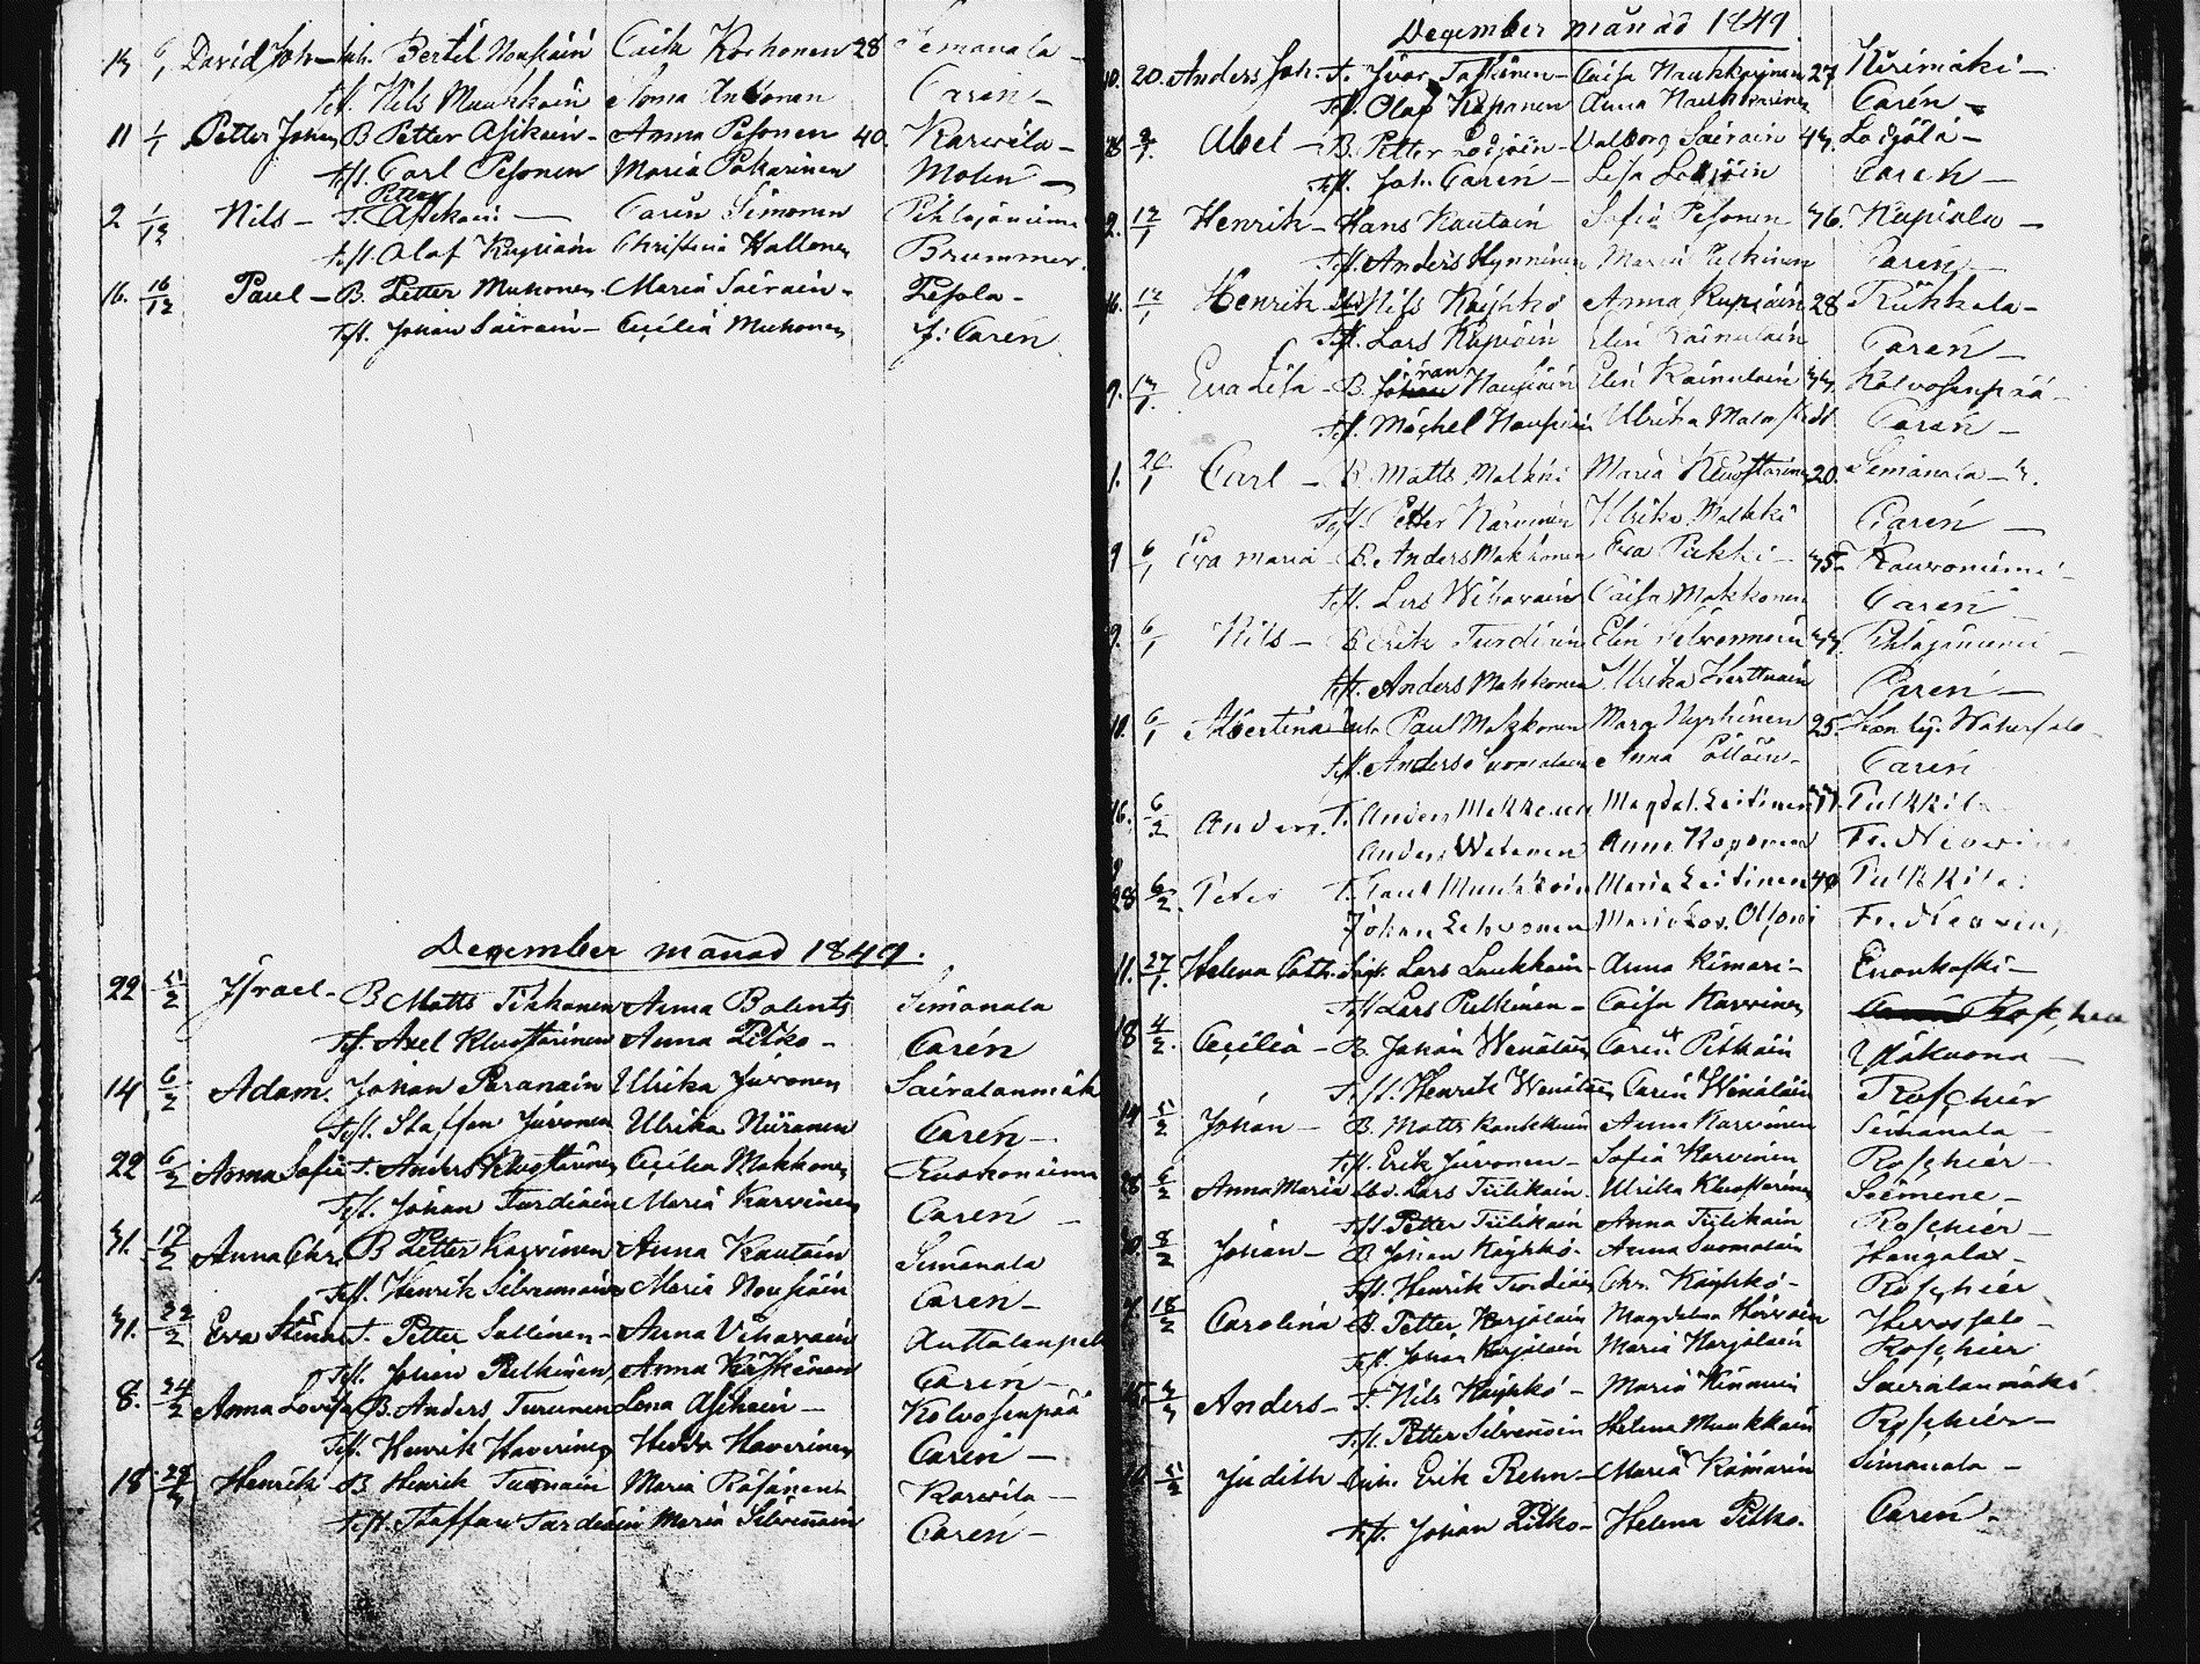 13 6/1 David Joh. — Inh. Bertel Nousiain Caisa Korhonen 28 Simanala —
test. Nils Muukkain Anna Anttonen Carén —
11 1/1 Petter Johan B Petter Asikain — Anna Pesonen 40. Karvila —
test. Carl Pesonen Maria Pakarinen Molin —
Petter
2 1/12 Nils — T. Asikain — Carin Simonen Pihlajaniemi
test. Olof Kupiain Christina Hallonen Brummer.
16. 16/12 Paul — B. Petter Muhonen Maria Sairain — Pesola —
test. Johan Sairain — Cecilia Muhonen J: Carén
December månad 1849.
22 5/2 Israel — B Matts Tikkanen Anna Bolentz Simanala
Test. Axel Kluostarinen Anna Pitko — Carén
14 6/2 Adam. Johan Paranain Ulrika Juvonen Sairalanmäk
Test. Staffan Juvonen Ulrika Niiranen Carén —
22 6/2 Anna Sofia T. Anders Kluostarinen Cecilia Makkonen Ruokoniemi
Test. Johan Turdiain Maria Karvinen Carén —
31. 17/2 Anna Chr. B Petter Karvinen Anna Kautain Simanala
Test. Henrik Silvennain Maria Nousiain Carén —
31. 22/2 Eva Stina T. Petter Sallinen — Anna Vihavain Auttalanpelt
Test. Johan Pulkinen Anna Kärkkänen Carén —
8. 24/2 Anna Lovisa B. Anders Turunen Lena Asikain — Kolvosenpää
Test. Henrik Haverinen Hedda Haverinen Carén —
18 28/3 Henrik B Henrik Tuonain Maria Räsänen Karvila —
test. Staffan Turdiain Maria Silvennain Carén —
December månad 1849.
10. 20. Anders Joh. T. Ivar Taskinen — Caisa Haukkarinen 27 Kirimäki —
Test. Olof Kupanen Anna Haukkarinen Carén —
28 2/1. Abel — B. Petter Lodjöin — Valborg Sairain 43. Lodjölä —
Test. Joh. Carén — Lisa Lodjöin Carén —
2. 12/1 Henrik — Hans Kautain Sofia Pesonen 36. Kupiala —
Test. Anders Hynninen Maria Pulkinen Carén —
16. 12/1 Henrik Nils Käyhkö Anna Kupiain 28 Rukkala —
Test. Lars Kupiain Elin Kainulain Carén —
ran
9. 13/1. Eva Lisa — B. Johan Nousiain Elin Kainulain 33. Kolvosenpää —
Test. Michel Nousiain Ulrika Malmstedt Carén —
1. 20/1 Carl — B. Matts Malkki Maria Kluostarinen 20. Simanala — 3.
Test. Petter Närvinen Ulrika Malkki Carén —
9 6/1 Eva Maria — B. Anders Makkonen Eva Pukki — 35. Kauvoniemi —
Test. Lars Wihavain Caisa Makkonen Carén
9. 6/1 Nils — B. Erik Turdiain Elin Silvennain 33. Pihlajaniemi —
test. Anders Makkonen Ulrika Herttuain Carén —
10. 6/1 Albertina Inh. Paul Makkonen Marg. Nyyhinen 25.
test. Anders Suomalain Anna Pöllöin — Carén
16. 6/2 Anders. T. Anders Makkonen Magdal. Leitinen 31. Pulkkila
Anders Watanen Anna Koponen
28 6/2. Peter T. Paul Muukkoin Maria Leitinen 40 Pulkkila.
Johan Lehvonen Maria Lov. Olsoni
11. 27/1. Helena Cath. Lars Laukkain — Anna Kimari — Enonkoski —
Test Lars Pulkinen — Caisa Karvinen Roschier
18 4/2. Cecilia — B. Johan Wenäläin Carin Pitkäin Ylläkuona —
Test. Henrik Wenäläin Carin Wenäläin Roschier
14 5/2 Johan — B. Matts Kankkuin Anna Karvinen Simanala —
Test. Erik Juvonen — Sofia Karvinen Roschier —
28 6/2 Anna Maria Lars Tiilikain. Ulrika Kluostarinen Säimene —
Test. Petter Tiilikain Anna Tiilikain Roschier —
30. 8/2 Johan — B Johan Käyhkö. Anna Suomalain Haugalax —
Test. Henrik Turdiain Chr. Käyhkö — Roschier
7. 18/2 Carolina B. Petter Karjalain Magdalena Hirvoin Hirvassalo —
Test. Johan Karjalain Maria Karjalain Roschier
15. 3/3 Anders — T. Nils Käyhkö — Maria Kinnuin Sairalanmäki.
Test. Petter Silvennoin Helena Muukkain Roschier —
10 5/2 Judith — Inh. Erik Rehn — Maria Kämärin Simanala —
Test. Johan Pitko — Helena Pitko. Carén —